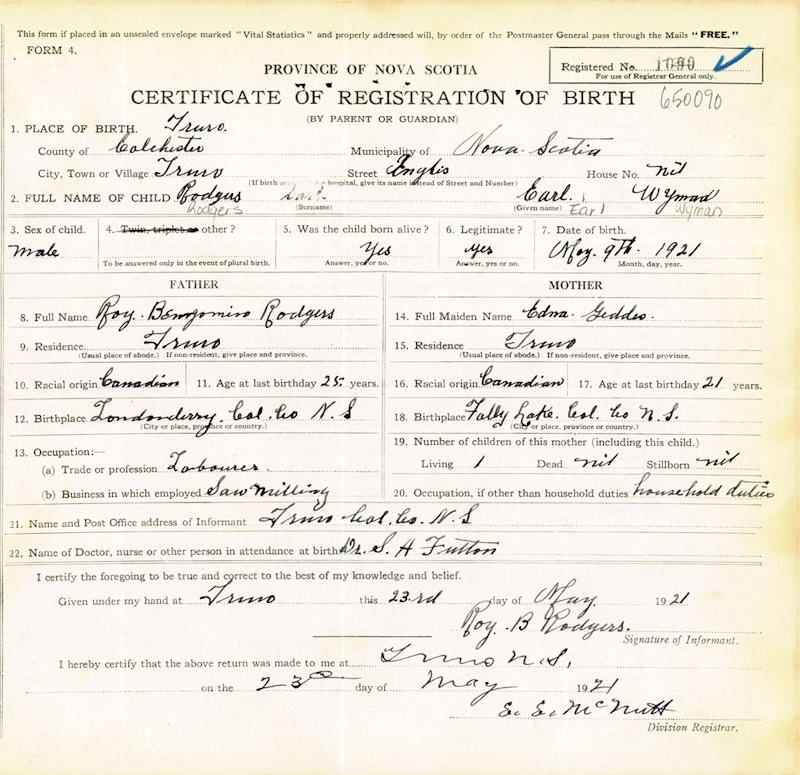 This form if placed in an unsealed envelope marked "Vital Statistics" and properly addressed will, by order of the Postmaster General pass through the Mails "FREE."
FORM 4.
Registered No. 1090
For use of Registrar General only.
PROVINCE OF NOVA SCOTIA
CERTIFICATE OF REGISTRATION OF BIRTH 650090
(BY PARENT OR GUARDIAN)
1. PLACE OF BIRTH. Truro.
County of Colchester Municipality of Nova Scotia
City, Town or Village Truro Street Inglis House No. nil
(If birth hospital, give its name instead of Street and Number)
2. FULL NAME OF CHILD Rodgers Earl Wyman
Rodgers (Surname) (Given name) Earl Wyman
3. Sex of child. 4. Twin, triplet or other? 5. Was the child born alive? 6. Legitimate? 7. Date of birth.
Male Yes yes May. 9th. 1921
To be answered only in the event of plural birth. Answer, yes or no. Answer, yes or no. Month, day, year.
FATHER MOTHER
8. Full Name Roy. Benjamin Rodgers 14. Full Maiden Name Edna Geddes.
9. Residence Truro 15. Residence Truro
(Usual place of abode.) If non-resident, give place and province. (Usual place of abode.) If non-resident, give place and province.
10. Racial origin Canadian 11. Age at last birthday 25 years. 16. Racial origin Canadian 17. Age at last birthday 21 years.
12. Birthplace Londonderry. Col. Co N. S 18. Birthplace Folly Lake. Col. Co N. S.
(City or place, province or country.) (City or place, province or country.)
13. Occupation:— 19. Number of children of this mother (including this child.)
(a) Trade or profession Labourer. Living 1 Dead nil Stillborn nil
(b) Business in which employed Saw Milling 20. Occupation, if other than household duties household duties
21. Name and Post Office address of Informant Truro Col. Co. N. S
22. Name of Doctor, nurse or other person in attendance at birth Dr. S. H Fulton
I certify the foregoing to be true and correct to the best of my knowledge and belief.
Given under my hand at Truro this 23rd day of May 1921
Roy. B Rodgers.
Signature of Informant.
I hereby certify that the above return was made to me at Truro N. S,
on the 23rd day of May 1921
E. E. McNutt
Division Registrar.